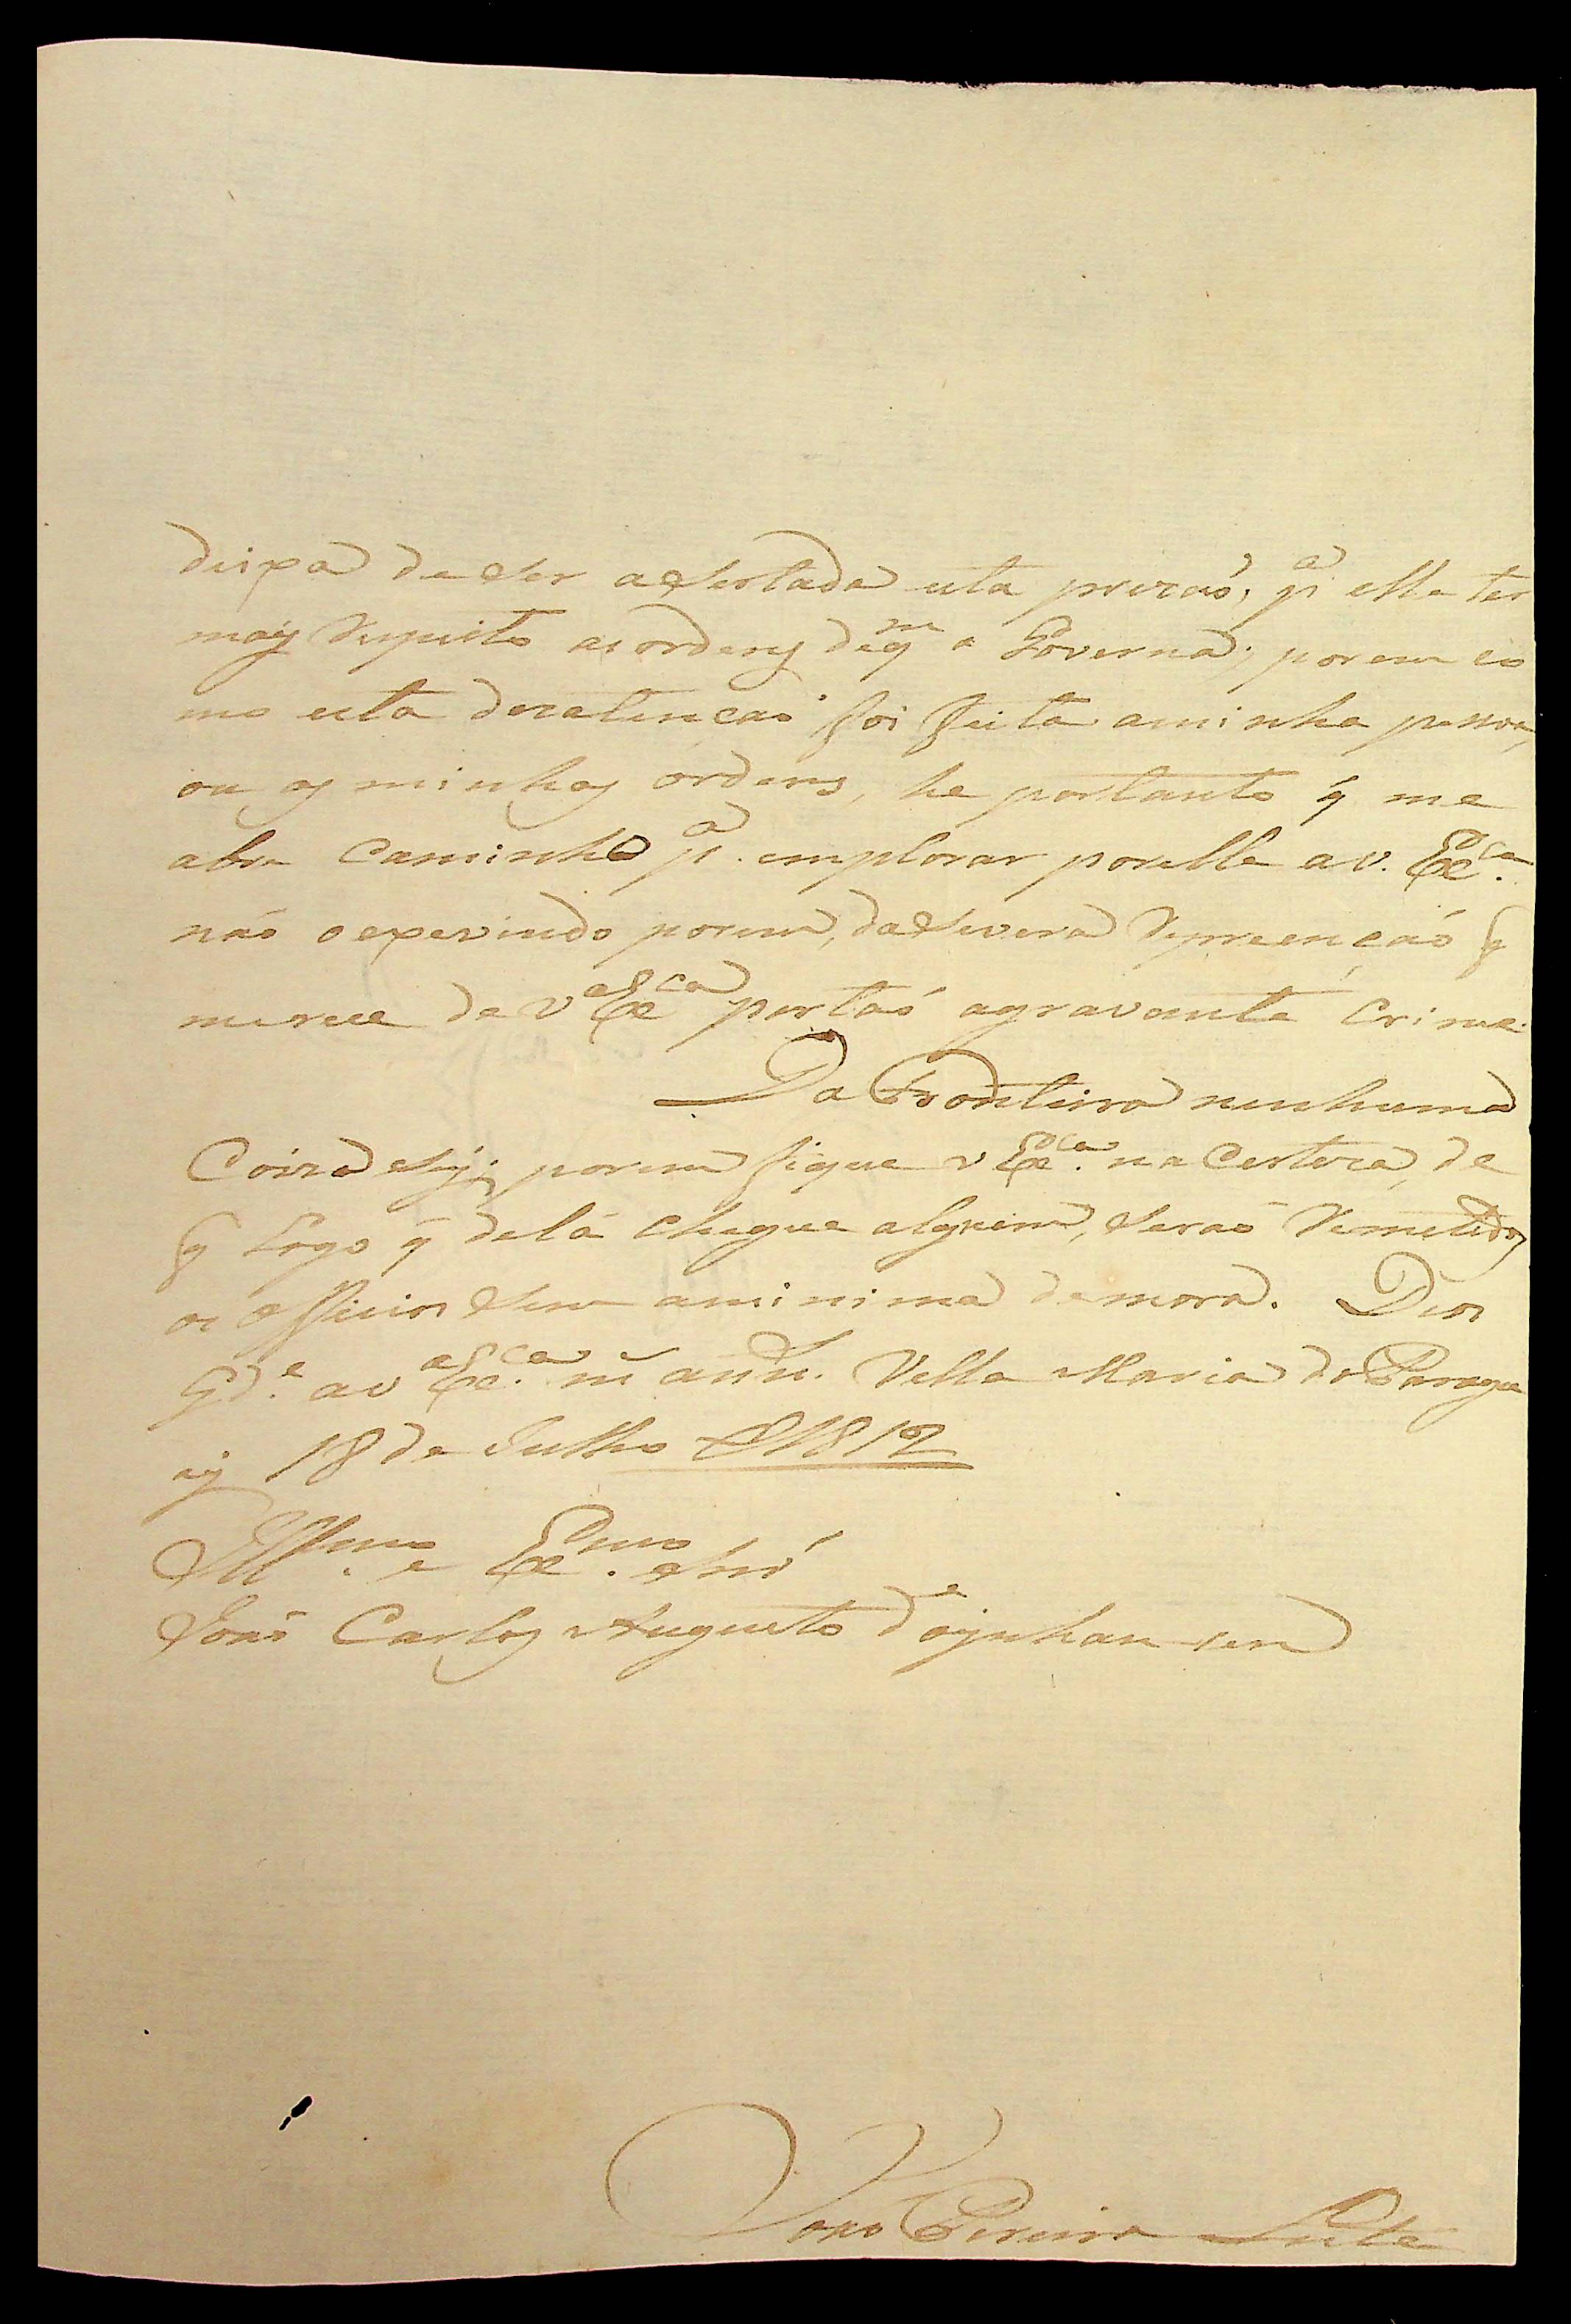 deixa de ser asertada esta prizaó, pª elle ter
maȷ́s respeito as ordens deqᵐ o Governa; porem co
mo esta dezatençaó foi feita aminha pessoa,
ou as minhas ordens, he portanto q̃ me
abre caminho pª. emplorar porelle av. Exᶜᵃ.
naó o eximindo porem, dasevera repreençaó q̃
merece de vª Exᶜᵃ portaó agravante crime.
Da Fronteira nenhuma
Coiza sey; porem fique v Exᶜᵃ. na Certeza, de
q̃ logo q̃ delá chegue alguem, seraó remetidos
os officios sem aminima demora. Deos
Gdᵉ. avª Exᶜᵃ. m̃ ann̄. Villa Maria do Paragu
ay 18 de Julho d 1812
Illᵐᵒ. e Exᵐᵒ. Snr̃
Joaó Carlos Augusto dᵉ oynhausen
Joaó Pereira Leite